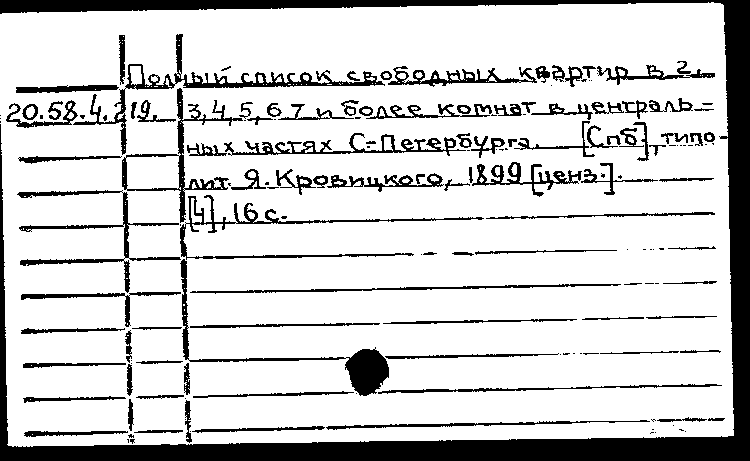 Полный список свободных квартир в 2,
20.58.4.219. 3,4,5,6 7 и более комнат в централь=
ных частях С=Петербурга. [Спб.], типо-
лит. Я. Кровицкого, 1899 [ценз.].
[4], 16 с.